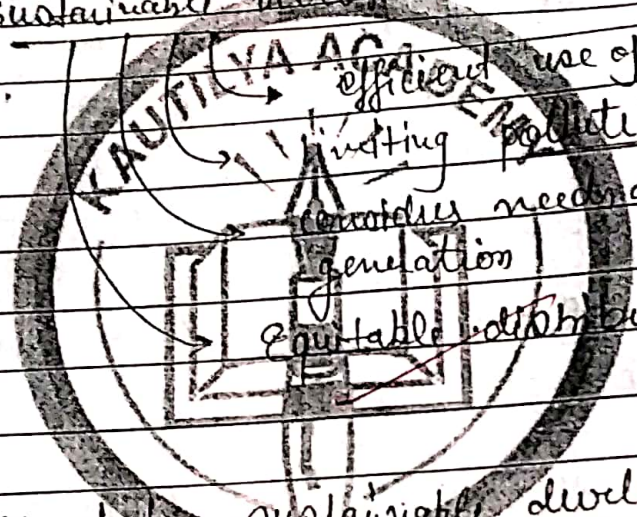 sustainable
KAUTILYA ACADEMY
efficient use of
limiting pollut
considers needs
generation
Equitable distribu
sustainable devel